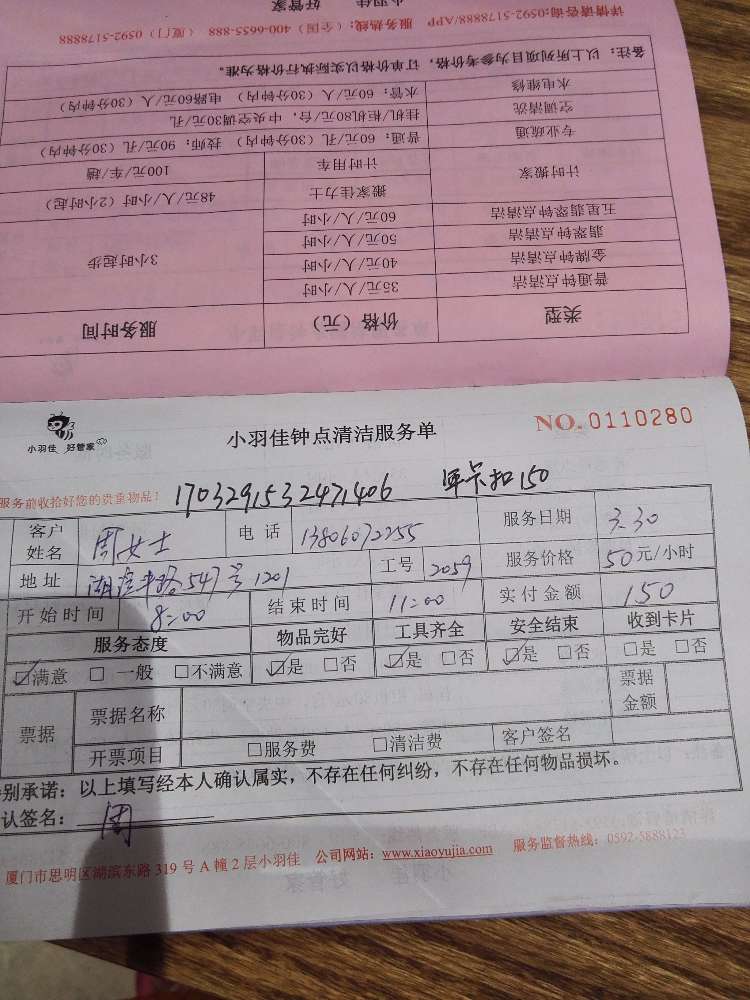 类型 价格（元） 服务时间
普通钟点清洁 35元/人/小时 3小时起步
金牌钟点清洁 40元/人/小时
翡翠钟点清洁 50元/人/小时
五星翡翠钟点清洁 60元/人/小时
计时搬家 搬家佳力士 48元/人/小时（2小时起）
计时用车 100元/车/趟
专业疏通 普通：60元/孔（30分钟内） 技师：90元/孔（30分钟内）
空调清洗 挂机/柜机80元/台，中央空调30元/孔
水电维修 水管：60元/人（30分钟内） 电路60元/人（30分钟内）
备注：以上所列项目为参考价格，订单价格以实际执行价格为准。
详情请咨询:0592-5178888/APP 服务热线：（全国）400-6655-888 （厦门）0592-5178888
小羽佳 好管家
小羽佳 好管家
小羽佳钟点清洁服务单
NO. 0110280
服务前收拾好您的贵重物品！ 1703291532471406 年卡扣150
客户姓名 周女士 电话 13806072255 服务日期 3.30
地址 547号1201 工号 2059 服务价格 50元/小时
开始时间 8:00 结束时间 11:00 实付金额 150
服务态度 物品完好 工具齐全 安全结束 收到卡片
☑满意 □一般 □不满意 ☑是 □否 ☑是 □否 ☑是 □否 □是 □否
票据 票据名称 票据金额
开票项目 □服务费 □清洁费 客户签名
别承诺：以上填写经本人确认属实，不存在任何纠纷，不存在任何物品损坏。
认签名： 周
厦门市思明区湖滨东路319号A幢2层小羽佳 公司网站：www.xiaoyujia.com 服务监督热线：0592-5888123